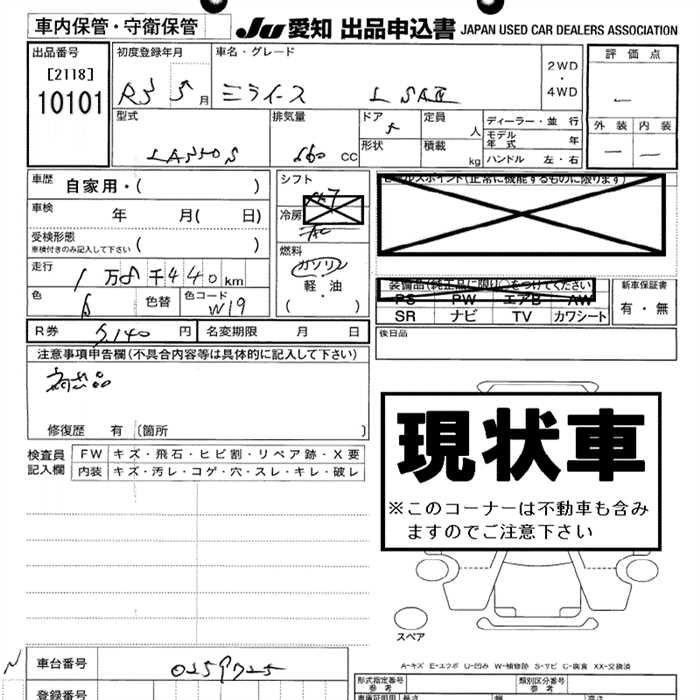 車内保管・守衛保管
JU 愛知 出品申込書 JAPAN USED CAR DEALERS ASSOCIATION
出品番号 初度登録年月 車名・グレード 2WD ・ 4WD 評価点
[2118]
10101
R5 5月 ミライース L SAⅢ
外装 内装
型式 排気量 ドア 定員 人 ディーラー・並行
5
モデル年式 年
LA350S 660 CC 形状 積載 kg ハンドル 左・右
車歴 自家用・( ) シフト セールスポイント(正常に機能するものに限ります)
車検 年 月( 日) 冷房 AC
受検形態
車検付きのみ記入して下さい ( ) 燃料
走行 1万8千440km ガソリン
軽油
( )
装備品(純正品に限り○をつけてください) 新車保証書
色 色替 色コード W19 PS PW エアB AW 有・無
SR ナビ TV カワシート
R券 5,140円 名変期限 月 日 後日品
注意事項申告欄(不具合内容等は具体的に記入して下さい)
商品
修復歴 有 (箇所 )
現状車
※このコーナーは不動車も含み
ますのでご注意下さい
検査員記入欄 FW キズ・飛石・ヒビ割・リペア跡・X要
内装 キズ・汚レ・コゲ・穴・スレ・キレ・破レ
スペア
A-キズ E-エクボ U-凹み W-補修跡 S-サビ C-腐食 XX-交換済
車台番号 0259725
登録番号
形式指定番号 参考 類別区分番号 参考